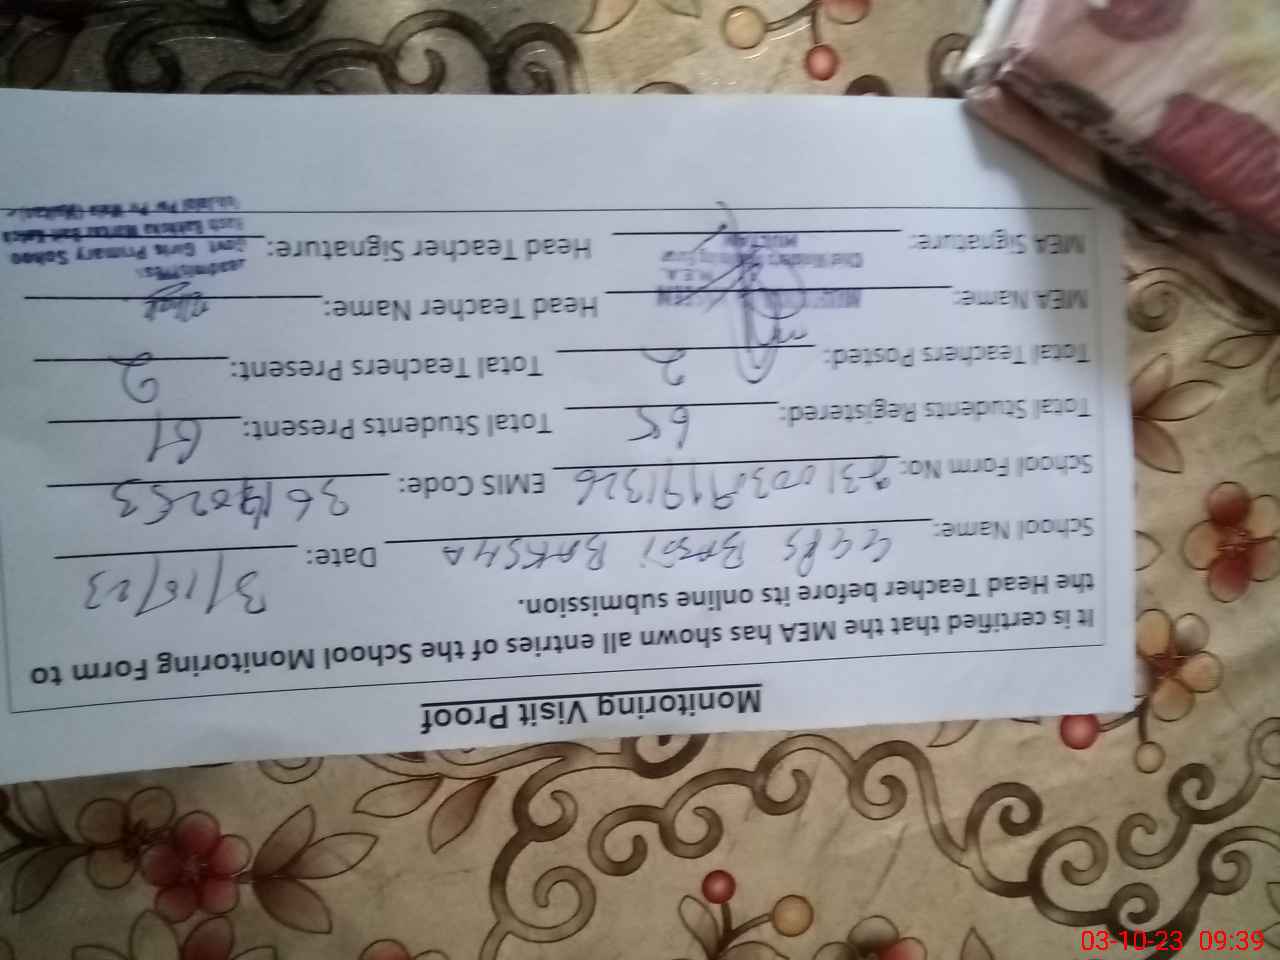 Monitoring Visit Proof
It is certified that the MEA has shown all entries of the School Monitoring Form to
the Head Teacher before its online submission.
School Name: GGPS BASTI BAKSHA Date: 3/10/23
School Form No: EMIS Code:
Total Students Registered: 65 Total Students Present: 61
Total Teachers Posted: 2 Total Teachers Present: 2
MEA Name: Head Teacher Name:
MEA Signature: Head Teacher Signature:
M.E.A
MULTAN
Govt. Girls Primary
03-10-23 09:39